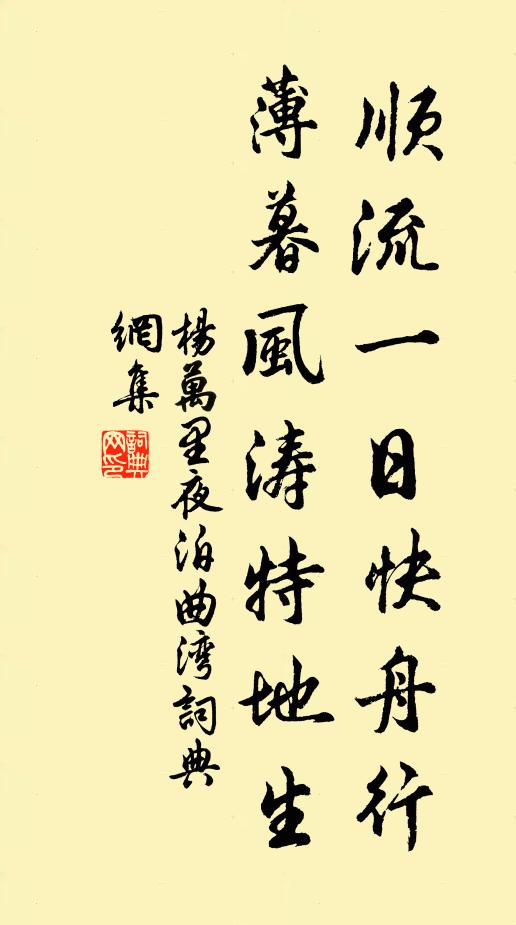 顺流一日快舟行
薄暮風涛特地生
楊萬里夜泊曲湾詞典
網集
詞典
网印